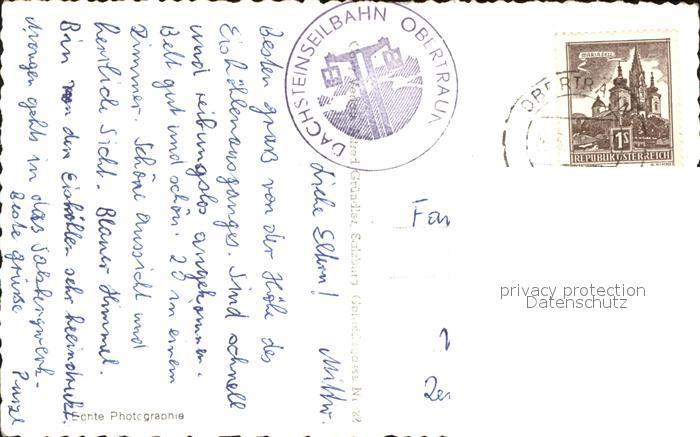 Liebe Eltern! Mittw.
Besten Gruß von der Höhe des
Eishöhlenausganges. Sind schnell
und reibungslos angekommen.
Bett gut und schön. 23 in einem
Zimmer. Schöne Aussicht und
herrliche Sicht. Blauer Himmel.
Bin von den Eishöhlen sehr beeindruckt.
Morgen gehts in das Salzbergwerk.
Beste Grüße
DACHSTEINSEILBAHN OBERTRAUN
MARIAZELL
1S
REPUBLIK ÖSTERREICH
OBERTRA
Salzburg
Fam
privacy protection
Datenschutz
Echte Photographie